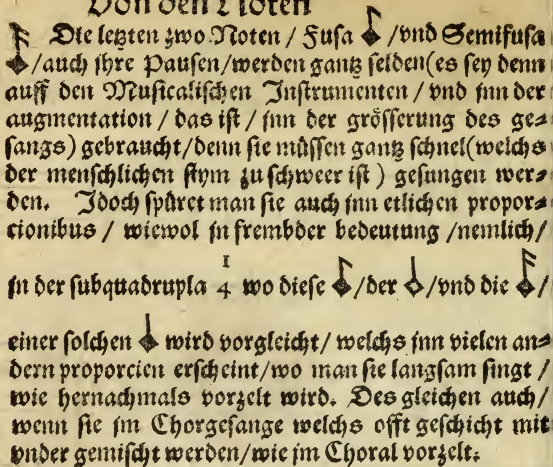 Von den Noten
Die letzten zwo Noten / Fusa /vnd Semifusa
/auch ihre Pausen/werden gantz selden(es sey denn
auff den Musicalischen Instrumenten / vnd inn der
augmentation / das ist / inn der grösserung des ge⸗
sangs) gebraucht/denn sie müssen gantz schnel(welchs
der menschlichen stym zu schweer ist ) gesungen wer⸗
den. Idoch spüret man sie auch inn etlichen propor⸗
cionibus / wiewol in frembder bedeutung /nemlich/
1
in der subquadrupla 4 wo diese /der /vnd die /
einer solchen wird vorgleicht/ welchs inn vielen an⸗
dern proporcien erscheint/wo man sie langsam singt /
wie hernachmals vorzelt wird. Des gleichen auch/
wenn sie im Chorgesange welchs offt geschicht mit
vnder gemischt werden/wie im Choral vorzelt.